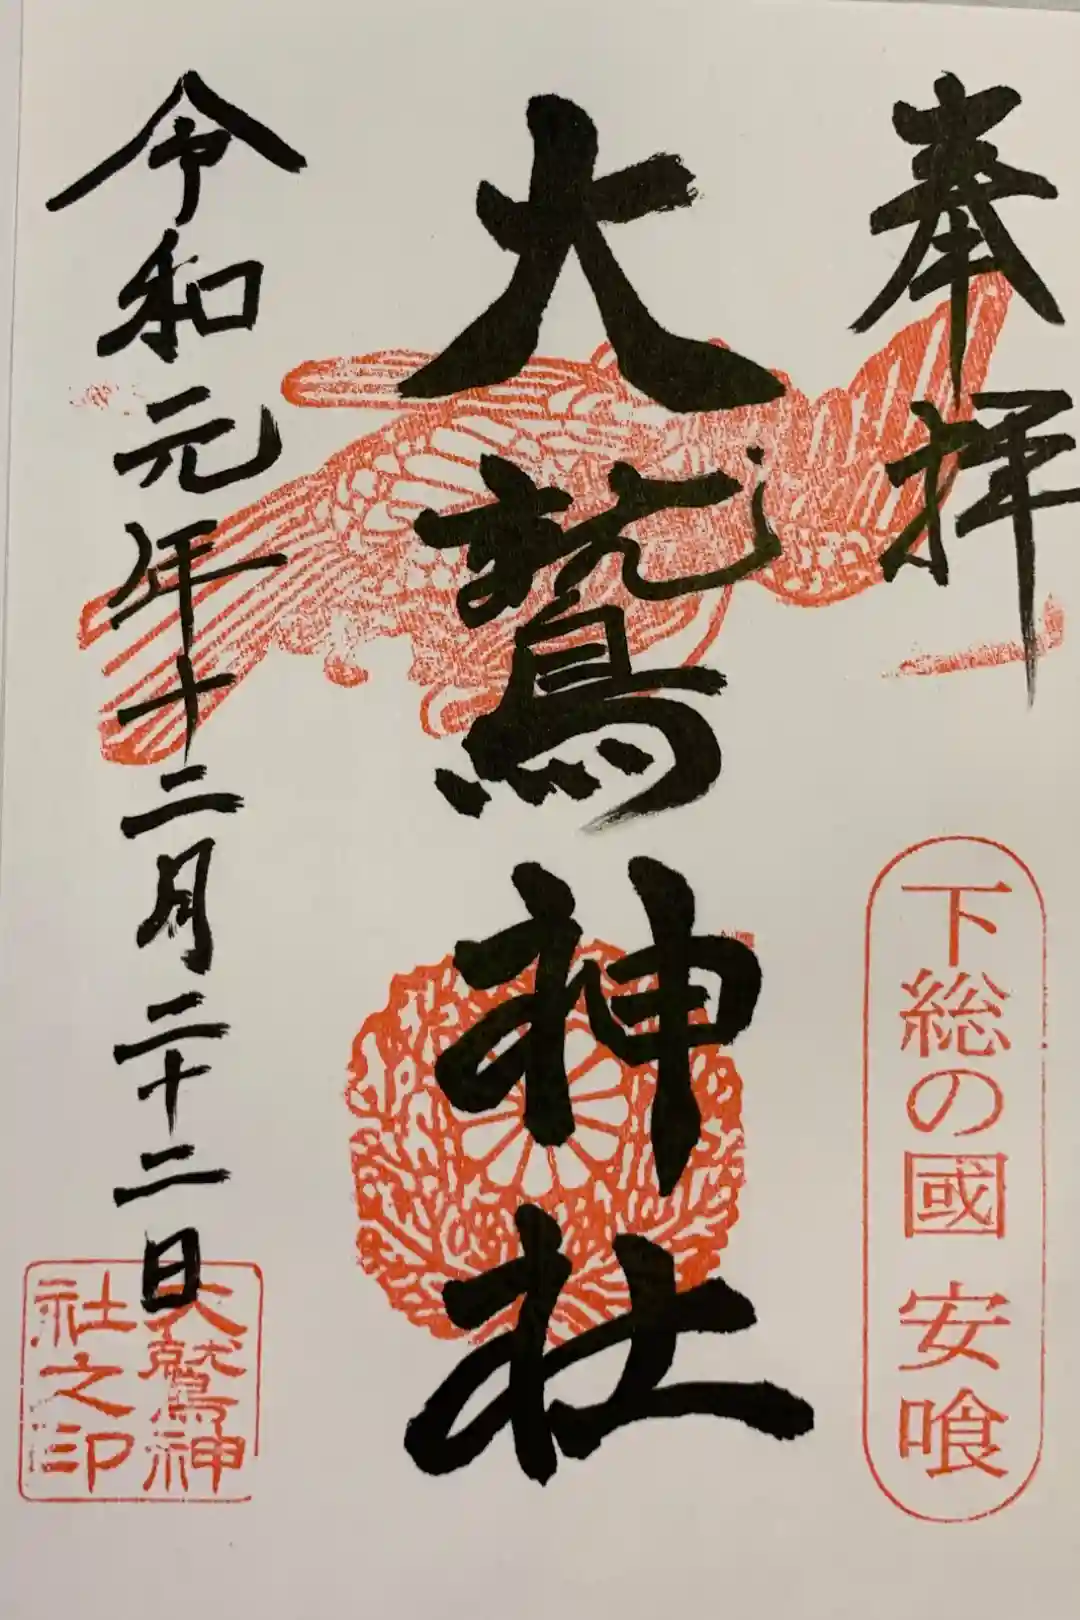 奉拝
下総の國 安喰
大鷲神社
令和元年十二月二十二日
大鷲神
社之印